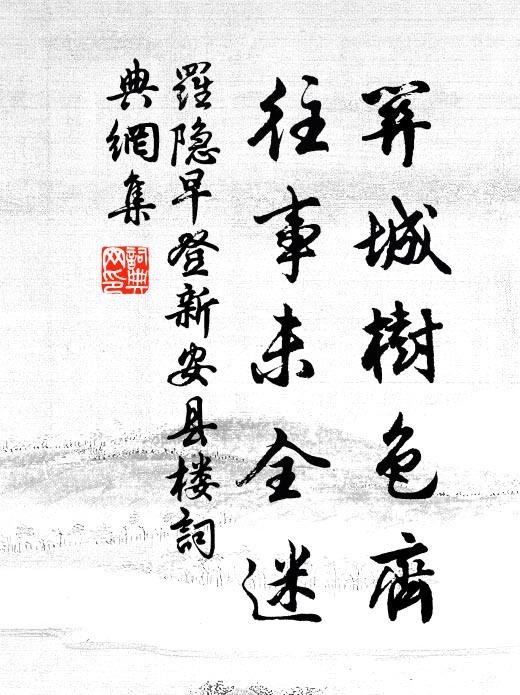 關城樹色齊
往事未全迷
羅隐早登新安县楼詞
典網集
詞典
网印